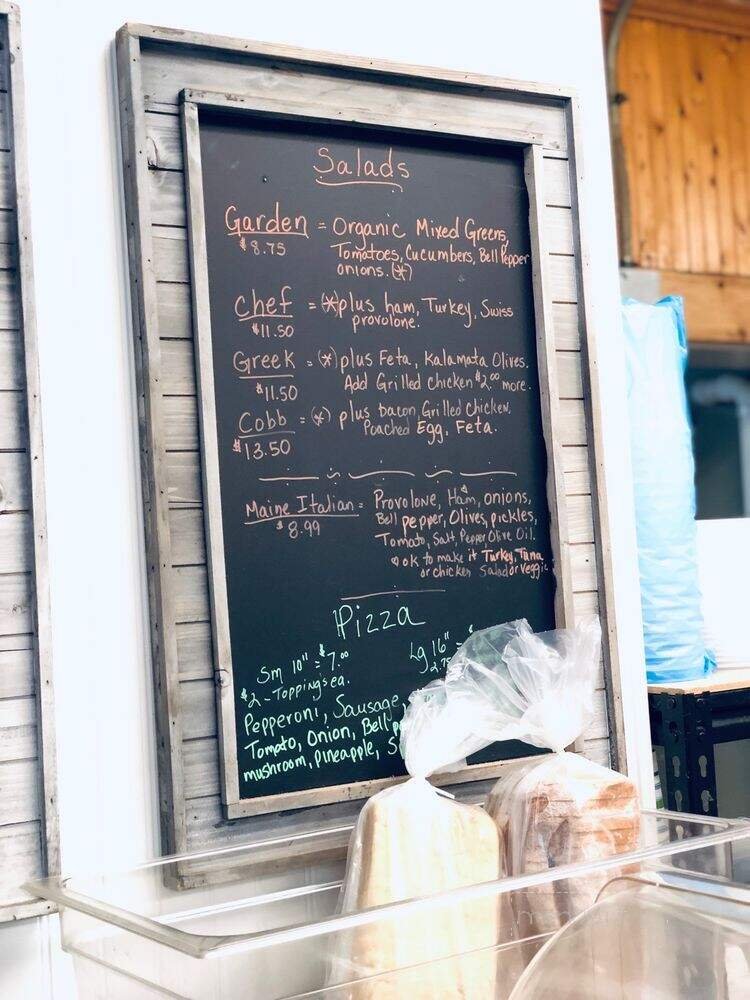 Salads
Garden = Organic Mixed Greens,
$8.75 Tomatoes, Cucumbers, Bell Pepper
onions. (*)
Chef = (*) plus ham, Turkey, Swiss
$11.50 provolone.
Greek = (*) plus Feta, Kalamata Olives.
$11.50 Add Grilled chicken $2.00 more.
Cobb = (*) plus bacon, Grilled chicken,
$13.50 Poached Egg, Feta.
Maine Italian = Provolone, Ham, onions,
$8.99 Bell pepper, Olives, pickles,
Tomato, Salt, Pepper, Olive Oil.
ok to make it Turkey, Tuna
or chicken Salad or Veggie
Pizza
Sm 10" = $7.00 Lg 16" =
$2 - Topping's ea. 2.75
Pepperoni, Sausage,
Tomato, Onion, Bell
mushroom, pineapple,